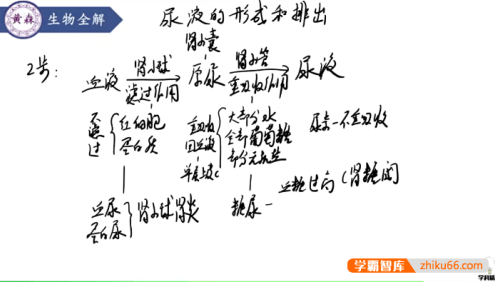 黄森 生物全解
尿液的形成和排出
肾小囊
2步:
血液 肾小球 滤过作用 原尿 肾小管 重吸收作用 尿液
不滤过 红细胞 蛋白质
重吸收回血液
大部分水
全部葡萄糖
部分无机盐
尿素-不重吸收
血尿 蛋白尿 肾小球肾炎
糖尿-
血糖过高(肾糖阈
学霸智库
zhiku66.com